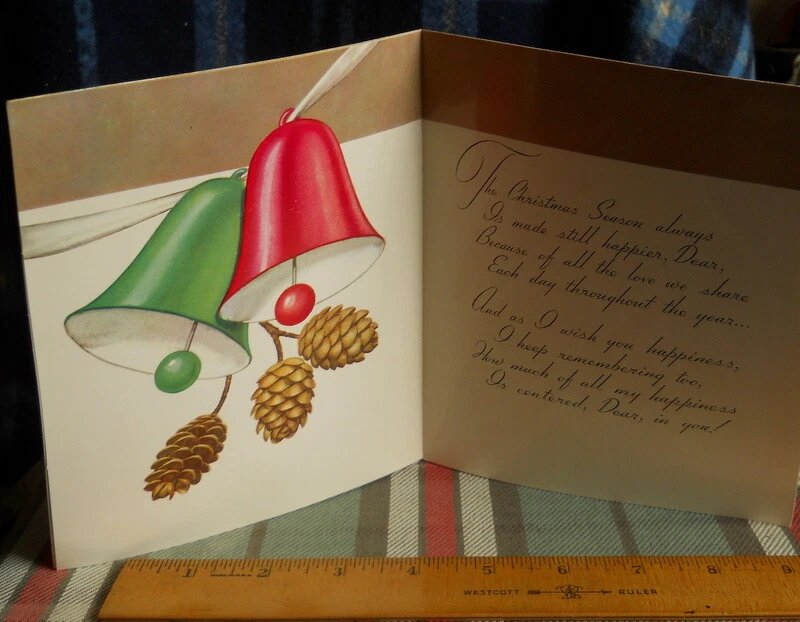 The Christmas Season always
Is made still happier, Dear,
Because of all the love we share
Each day throughout the year...
And as I wish you happiness,
I keep remembering too,
How much of all my happiness
Is centered, Dear, in you!
1 2 3 4 5 6 7 8 9
WESTCOTT RULER